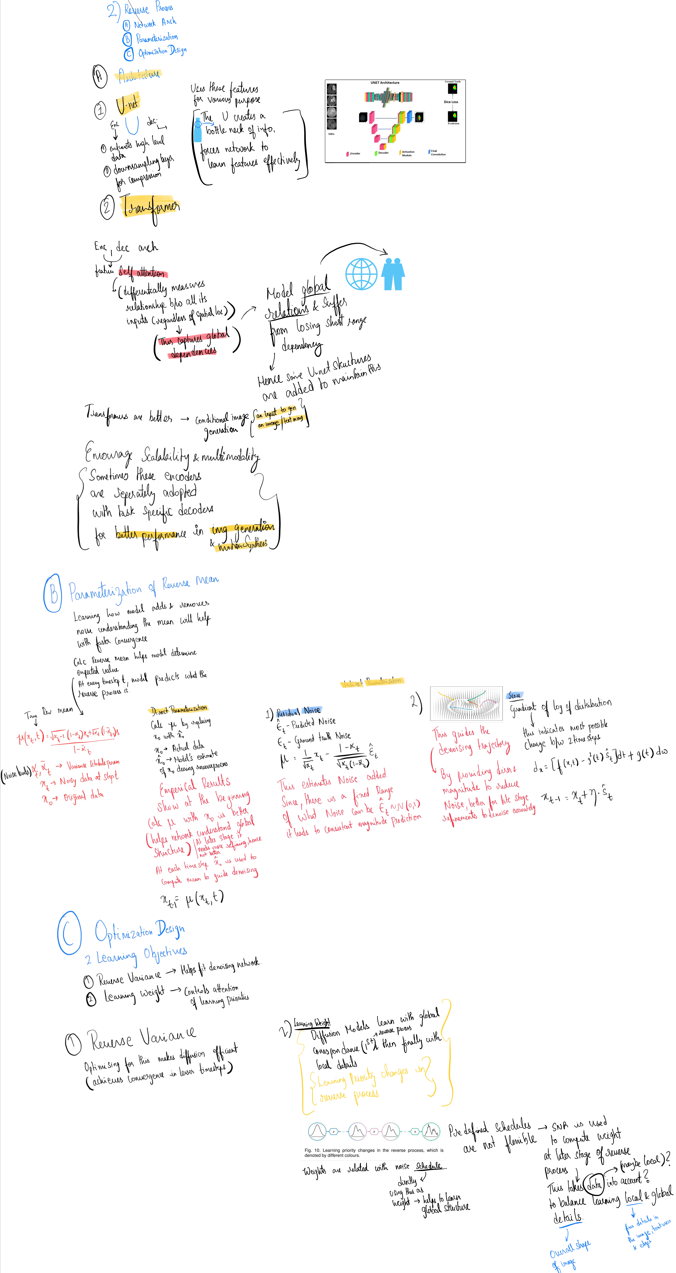 2) Reverse Process
Ⓐ Network Arch
Ⓑ Parameterization
Ⓒ Optimization Design
Ⓐ Architecture
① U-net
Enc dec
① extracts high level
data
② downsampling layers
for compression
Uses these features
for various purpose
The U creates a
bottle neck of info,
forces network to
learn features effectively
UNET Architecture
② Transformer
Enc, dec arch
feature self attention
(differentially measures
relationship b/w all its
inputs (regardless of spatial loc)
This captures global
dependencies
Model global
relations & suffer
from losing short range
dependency
Hence some U-net structures
are added to maintain this
Transformers are better → conditional image
generation
an input to gen
an image/text → img
Encourage Scalability & multimodality
Sometimes these encoders
are seperately adopted
with task specific decoders
for better performance in img generation
&
Ⓑ Parameterization of Reverse Mean
Learning how model adds & removes
noise understanding the mean will help
with faster convergence
Calc Reverse mean helps model determine
expected value
At every timestep t, model predicts what the
reverse process is
True Rev mean
x_t → Noisy data at step t
x_0 → Original data
Direct Parametrization
Calc μ by replacing
x_0 with x̂_0
x_0 → Actual data
x̂_0 → Model's estimate
of x_0 during reverse process
Emperical Results
Show at the beginning
calc μ with x_0 is better
(helps network understand global
structure)
At later stage it
needs more refining, hence
not better
At each timestep x̂_0 is used to
compute mean to guide denoising
x_{t-1} = μ(x_t, t)
1) Residual Noise
ε̂_t - Predicted Noise
ε_t - Ground truth Noise
This estimates Noise added
Since, there is a fixed Range
of what Noise can be ε_t ~ N(0,1)
it leads to consistent magnitude prediction
2)
Score
Gradient of log of distribution
this indicates most possible
change b/w 2 timesteps
This guides the
denoising trajectory
By providing dirn &
magnitude to reduce
Noise, better for late stage
refinements to denoise accurately
dx = [f(x,t) - g²(t) ŝ_t]dt + g(t) dw
x_{t-1} = x_t + η · ŝ_t
Ⓒ Optimization Design
2 Learning Objectives
① Reverse Variance → Helps fit denoising network
② Learning Weight → Controls attention
of learning priorities
① Reverse Variance
Optimising for this makes diffusion efficient
(achieves convergence in lesser timesteps)
2) Learning Weight
Diffusion Models learn with global
correspondance (1st) then finally with
local details
Learning Priority changes in
reverse process
Fig. 10. Learning priority changes in the reverse process, which is
denoted by different colours.
Weights are related with noise schedule
directly
using this as
weight → helps to learn
global structure
Pre defined schedules → SNR is used
are not flexible
to compute weight
at later stage of reverse
process
(maybe local)?
This takes data into account?
to balance learning local & global
details
overall shape
of image
fine details in
the image, textures
& edges